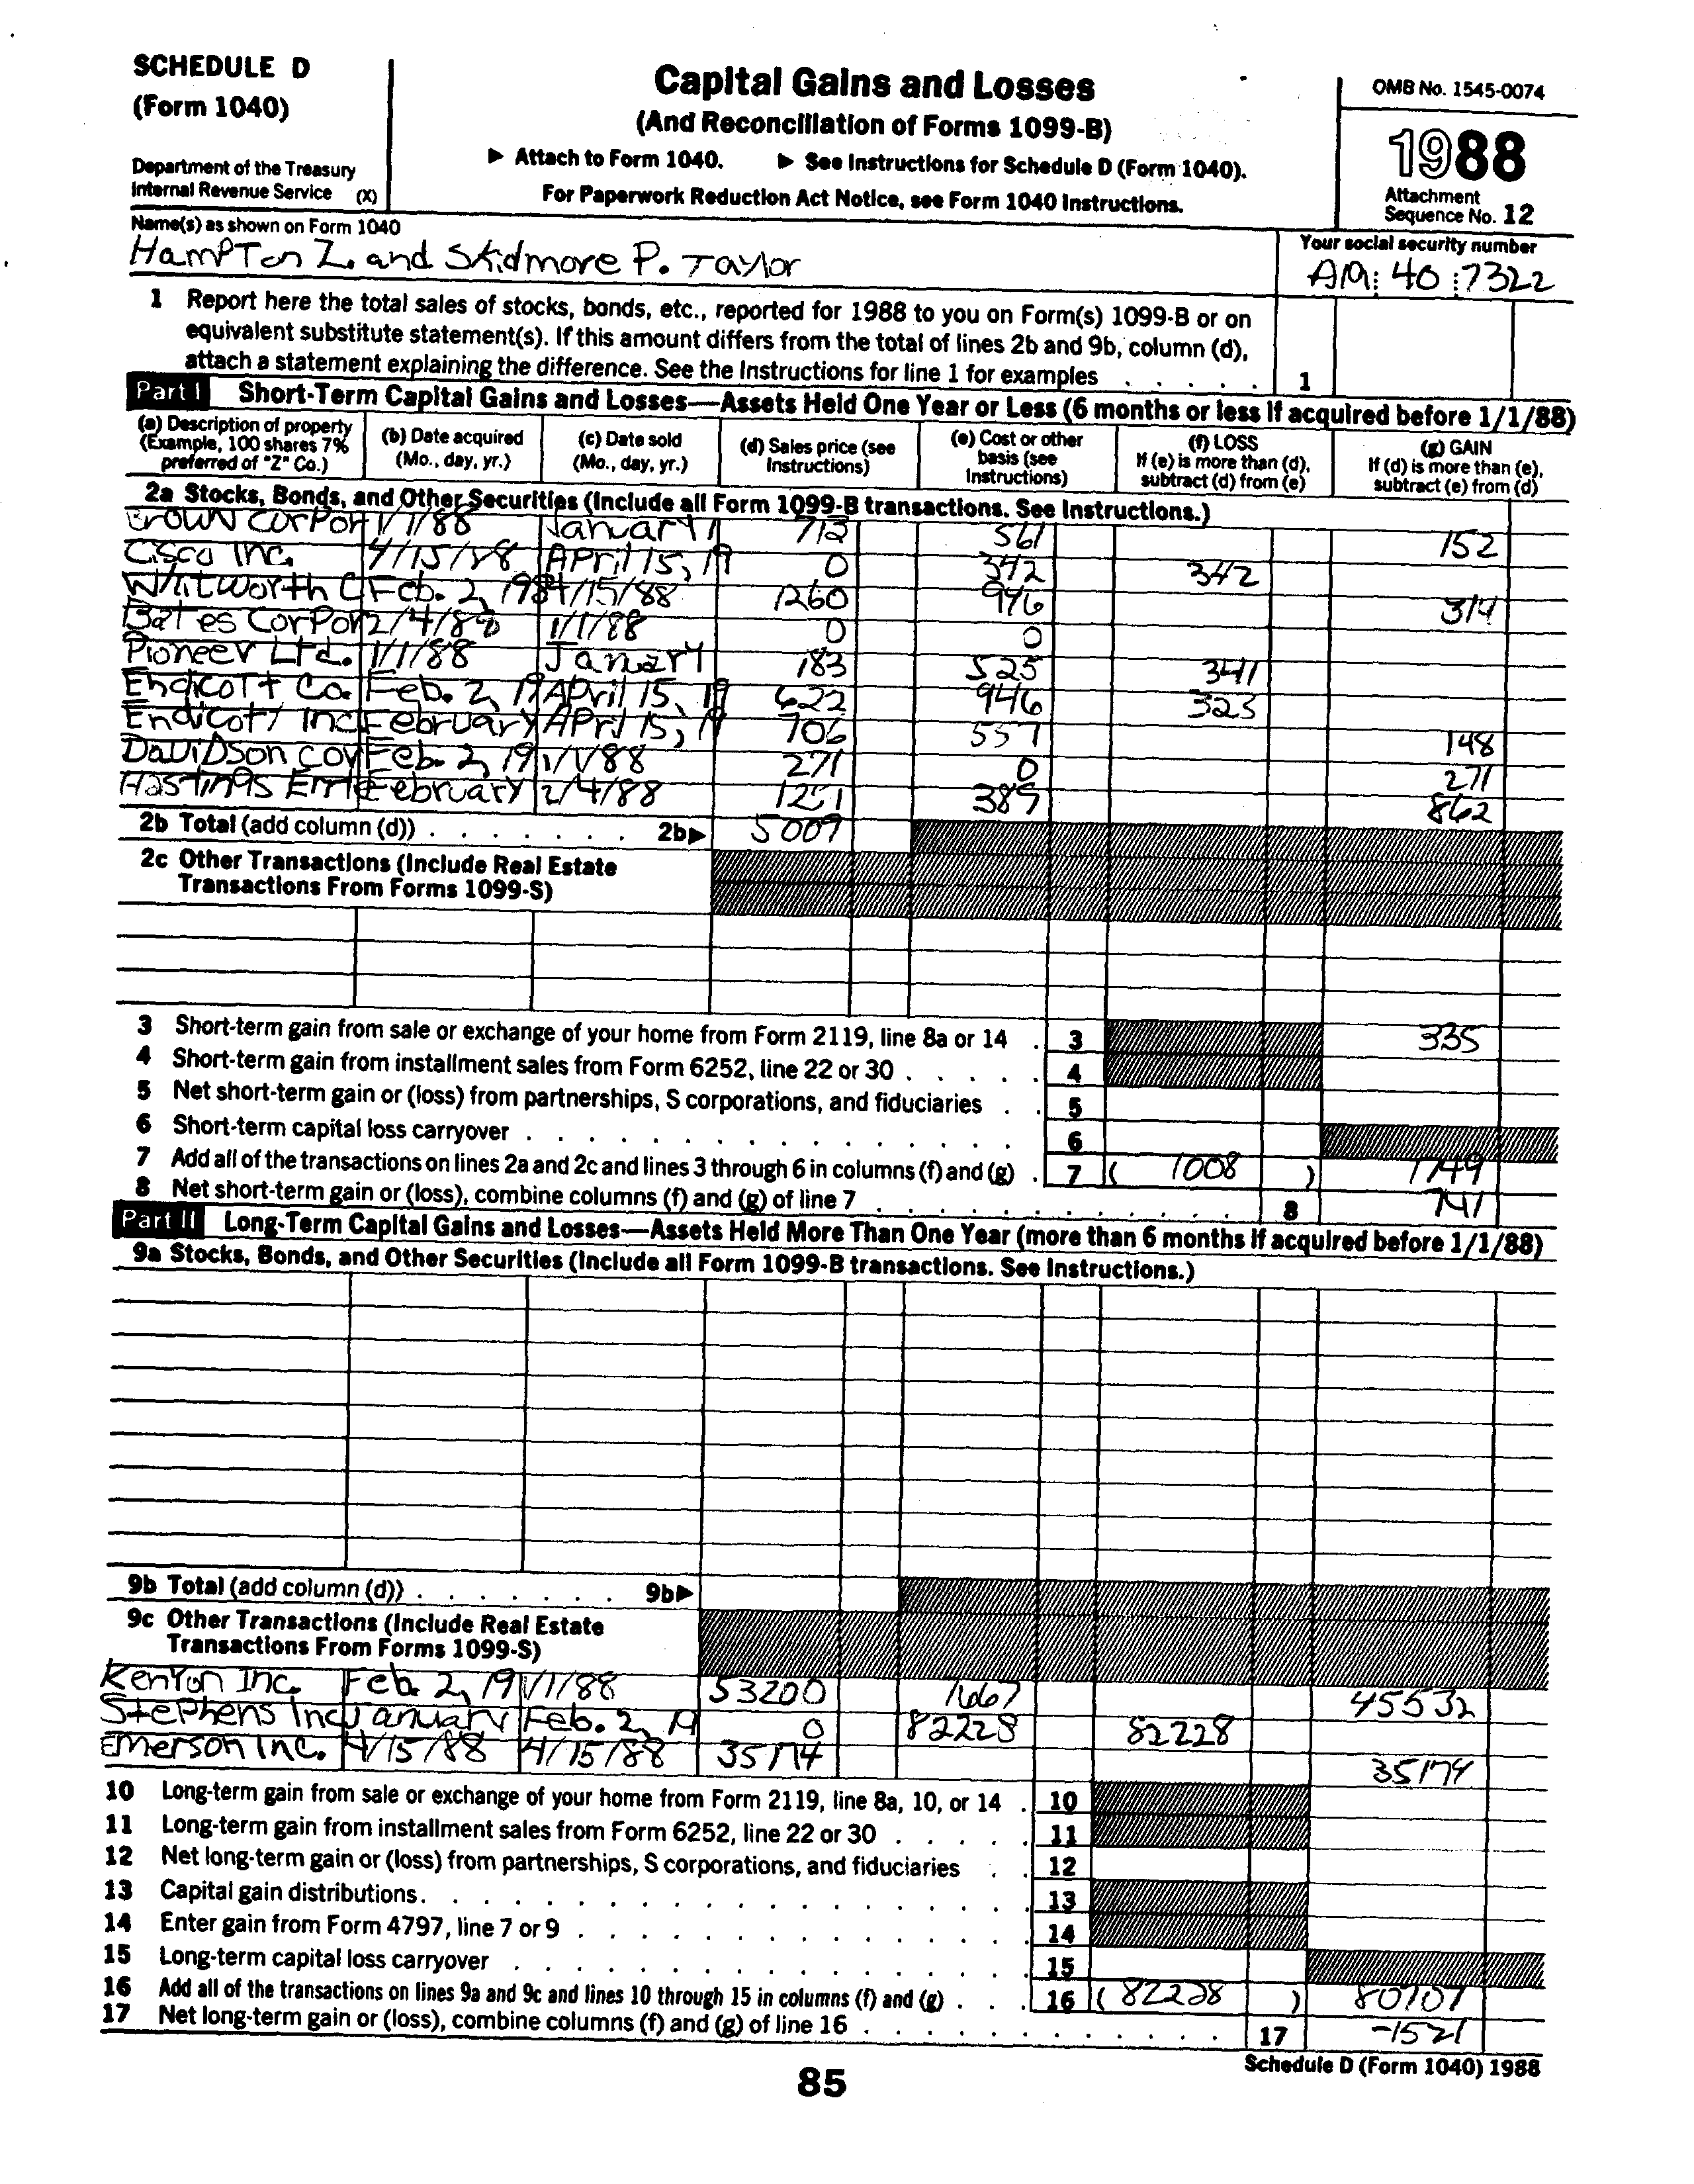 SCHEDULE D
(Form 1040)
Department of the Treasury
Internal Revenue Service (X)
Capital Gains and Losses
(And Reconciliation of Forms 1099-B)
▶ Attach to Form 1040. ▶ See Instructions for Schedule D (Form 1040).
For Paperwork Reduction Act Notice, see Form 1040 Instructions.
OMB No. 1545-0074
1988
Attachment
Sequence No. 12
Name(s) as shown on Form 1040
Hampton Z. and Skidmore P. Taylor
Your social security number
AM: 40 :7322
1 Report here the total sales of stocks, bonds, etc., reported for 1988 to you on Form(s) 1099-B or on
equivalent substitute statement(s). If this amount differs from the total of lines 2b and 9b, column (d),
attach a statement explaining the difference. See the Instructions for line 1 for examples . . . . . 1
Part I Short-Term Capital Gains and Losses—Assets Held One Year or Less (6 months or less if acquired before 1/1/88)
(a) Description of property
(Example, 100 shares 7%
preferred of "Z" Co.)
(b) Date acquired
(Mo., day, yr.)
(c) Date sold
(Mo., day, yr.)
(d) Sales price (see
Instructions)
(e) Cost or other
basis (see
Instructions)
(f) LOSS
If (e) is more than (d),
subtract (d) from (e)
(g) GAIN
If (d) is more than (e),
subtract (e) from (d)
2a Stocks, Bonds, and Other Securities (Include all Form 1099-B transactions. See Instructions.)
Brown Corpor 1/1/88 January 1 713 561 152
Cisco Inc. 4/15/88 April 15, 19 0 342 342
Whitworth C Feb. 2, 198 4/15/88 1260 946 314
Bates Corpor 2/4/88 1/1/88 0 0
Pioneer Ltd. 1/1/88 January 183 525 341
Endicott Co. Feb. 2, 19 April 15, 19 622 946 323
Endicott Inc February April 15, 19 706 557 148
Davidson Cor Feb. 2, 19 1/1/88 271 0 271
Hastings Ente February 2/4/88 1251 389 862
2b Total (add column (d)) . . . . . . . 2b▶ 5009
2c Other Transactions (Include Real Estate
Transactions From Forms 1099-S)
3 Short-term gain from sale or exchange of your home from Form 2119, line 8a or 14 . 3 335
4 Short-term gain from installment sales from Form 6252, line 22 or 30 . . . . . 4
5 Net short-term gain or (loss) from partnerships, S corporations, and fiduciaries . . 5
6 Short-term capital loss carryover . . . . . . . . . . . . . . . . 6
7 Add all of the transactions on lines 2a and 2c and lines 3 through 6 in columns (f) and (g) . 7 ( 1008 ) 1749
8 Net short-term gain or (loss), combine columns (f) and (g) of line 7 . . . . . . . . . . . . 8 741
Part II Long-Term Capital Gains and Losses—Assets Held More Than One Year (more than 6 months if acquired before 1/1/88)
9a Stocks, Bonds, and Other Securities (Include all Form 1099-B transactions. See Instructions.)
9b Total (add column (d)) . . . . . . . 9b▶
9c Other Transactions (Include Real Estate
Transactions From Forms 1099-S)
Kenyon Inc. Feb. 2, 19 1/1/88 53200 7667 45532
Stephens Inc January Feb. 2, 19 0 82228 82228
Emerson Inc. 4/15/88 4/15/88 35174 35174
10 Long-term gain from sale or exchange of your home from Form 2119, line 8a, 10, or 14 . 10
11 Long-term gain from installment sales from Form 6252, line 22 or 30 . . . . . 11
12 Net long-term gain or (loss) from partnerships, S corporations, and fiduciaries . . 12
13 Capital gain distributions . . . . . . . . . . . . . . . . . . 13
14 Enter gain from Form 4797, line 7 or 9 . . . . . . . . . . . . . . 14
15 Long-term capital loss carryover . . . . . . . . . . . . . . . . 15
16 Add all of the transactions on lines 9a and 9c and lines 10 through 15 in columns (f) and (g) . . . 16 ( 82228 ) 80707
17 Net long-term gain or (loss), combine columns (f) and (g) of line 16 . . . . . . . . . . . . 17 -1521
Schedule D (Form 1040) 1988
85